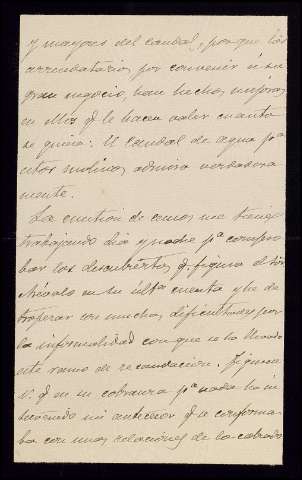 y mayores del caudal, porque los
arrendatarios por convenir á su
gran negocio, han hecho mejoras
en Mos q. le hacen valer cuanto
se quiera. El caudal de agua pª
estos molinos admira verdadera
mente.
La cuestion de censos me tiene
trabajando dia y noche pª compro
bar los descubiertos q. figura el Sor
Arévalo en su últª cuenta y he de
tropezar con muchas dificultades por
la informalidad con que se ha llevado
este ramo de recaudacion. Figurese
V. q. en su cobranza pª nada ha in
tervenido mi antecesor q. se conforma
ba con unas relaciones de lo cobrado